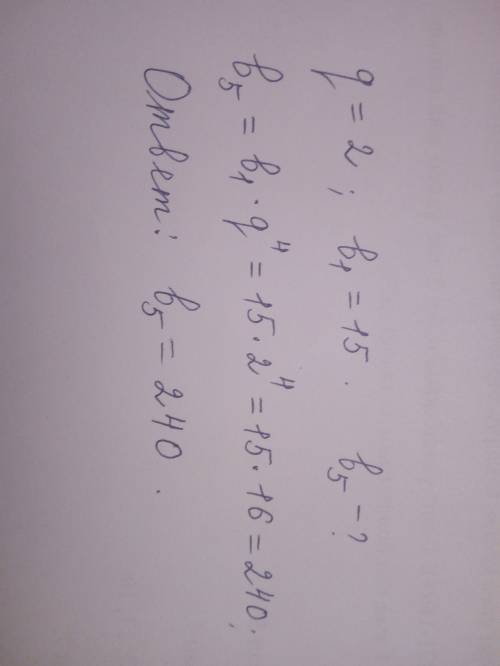 q = 2; b₁ = 15. b₅ - ?
b₅ = b₁ · q⁴ = 15 · 2⁴ = 15 · 16 = 240;
Ответ: b₅ = 240.